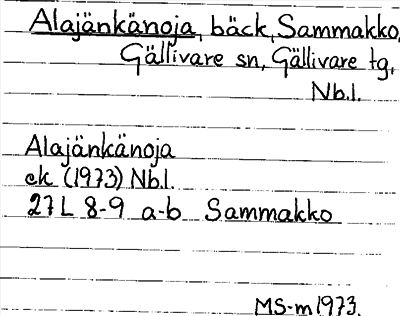 Alajänkänoja, bäck, Sammakko,
Gällivare sn, Gällivare tg,
Nb.l.
Alajänkänoja
ek (1973) Nb.l.
27 L 8-9 a-b Sammakko
MS-m 1973.